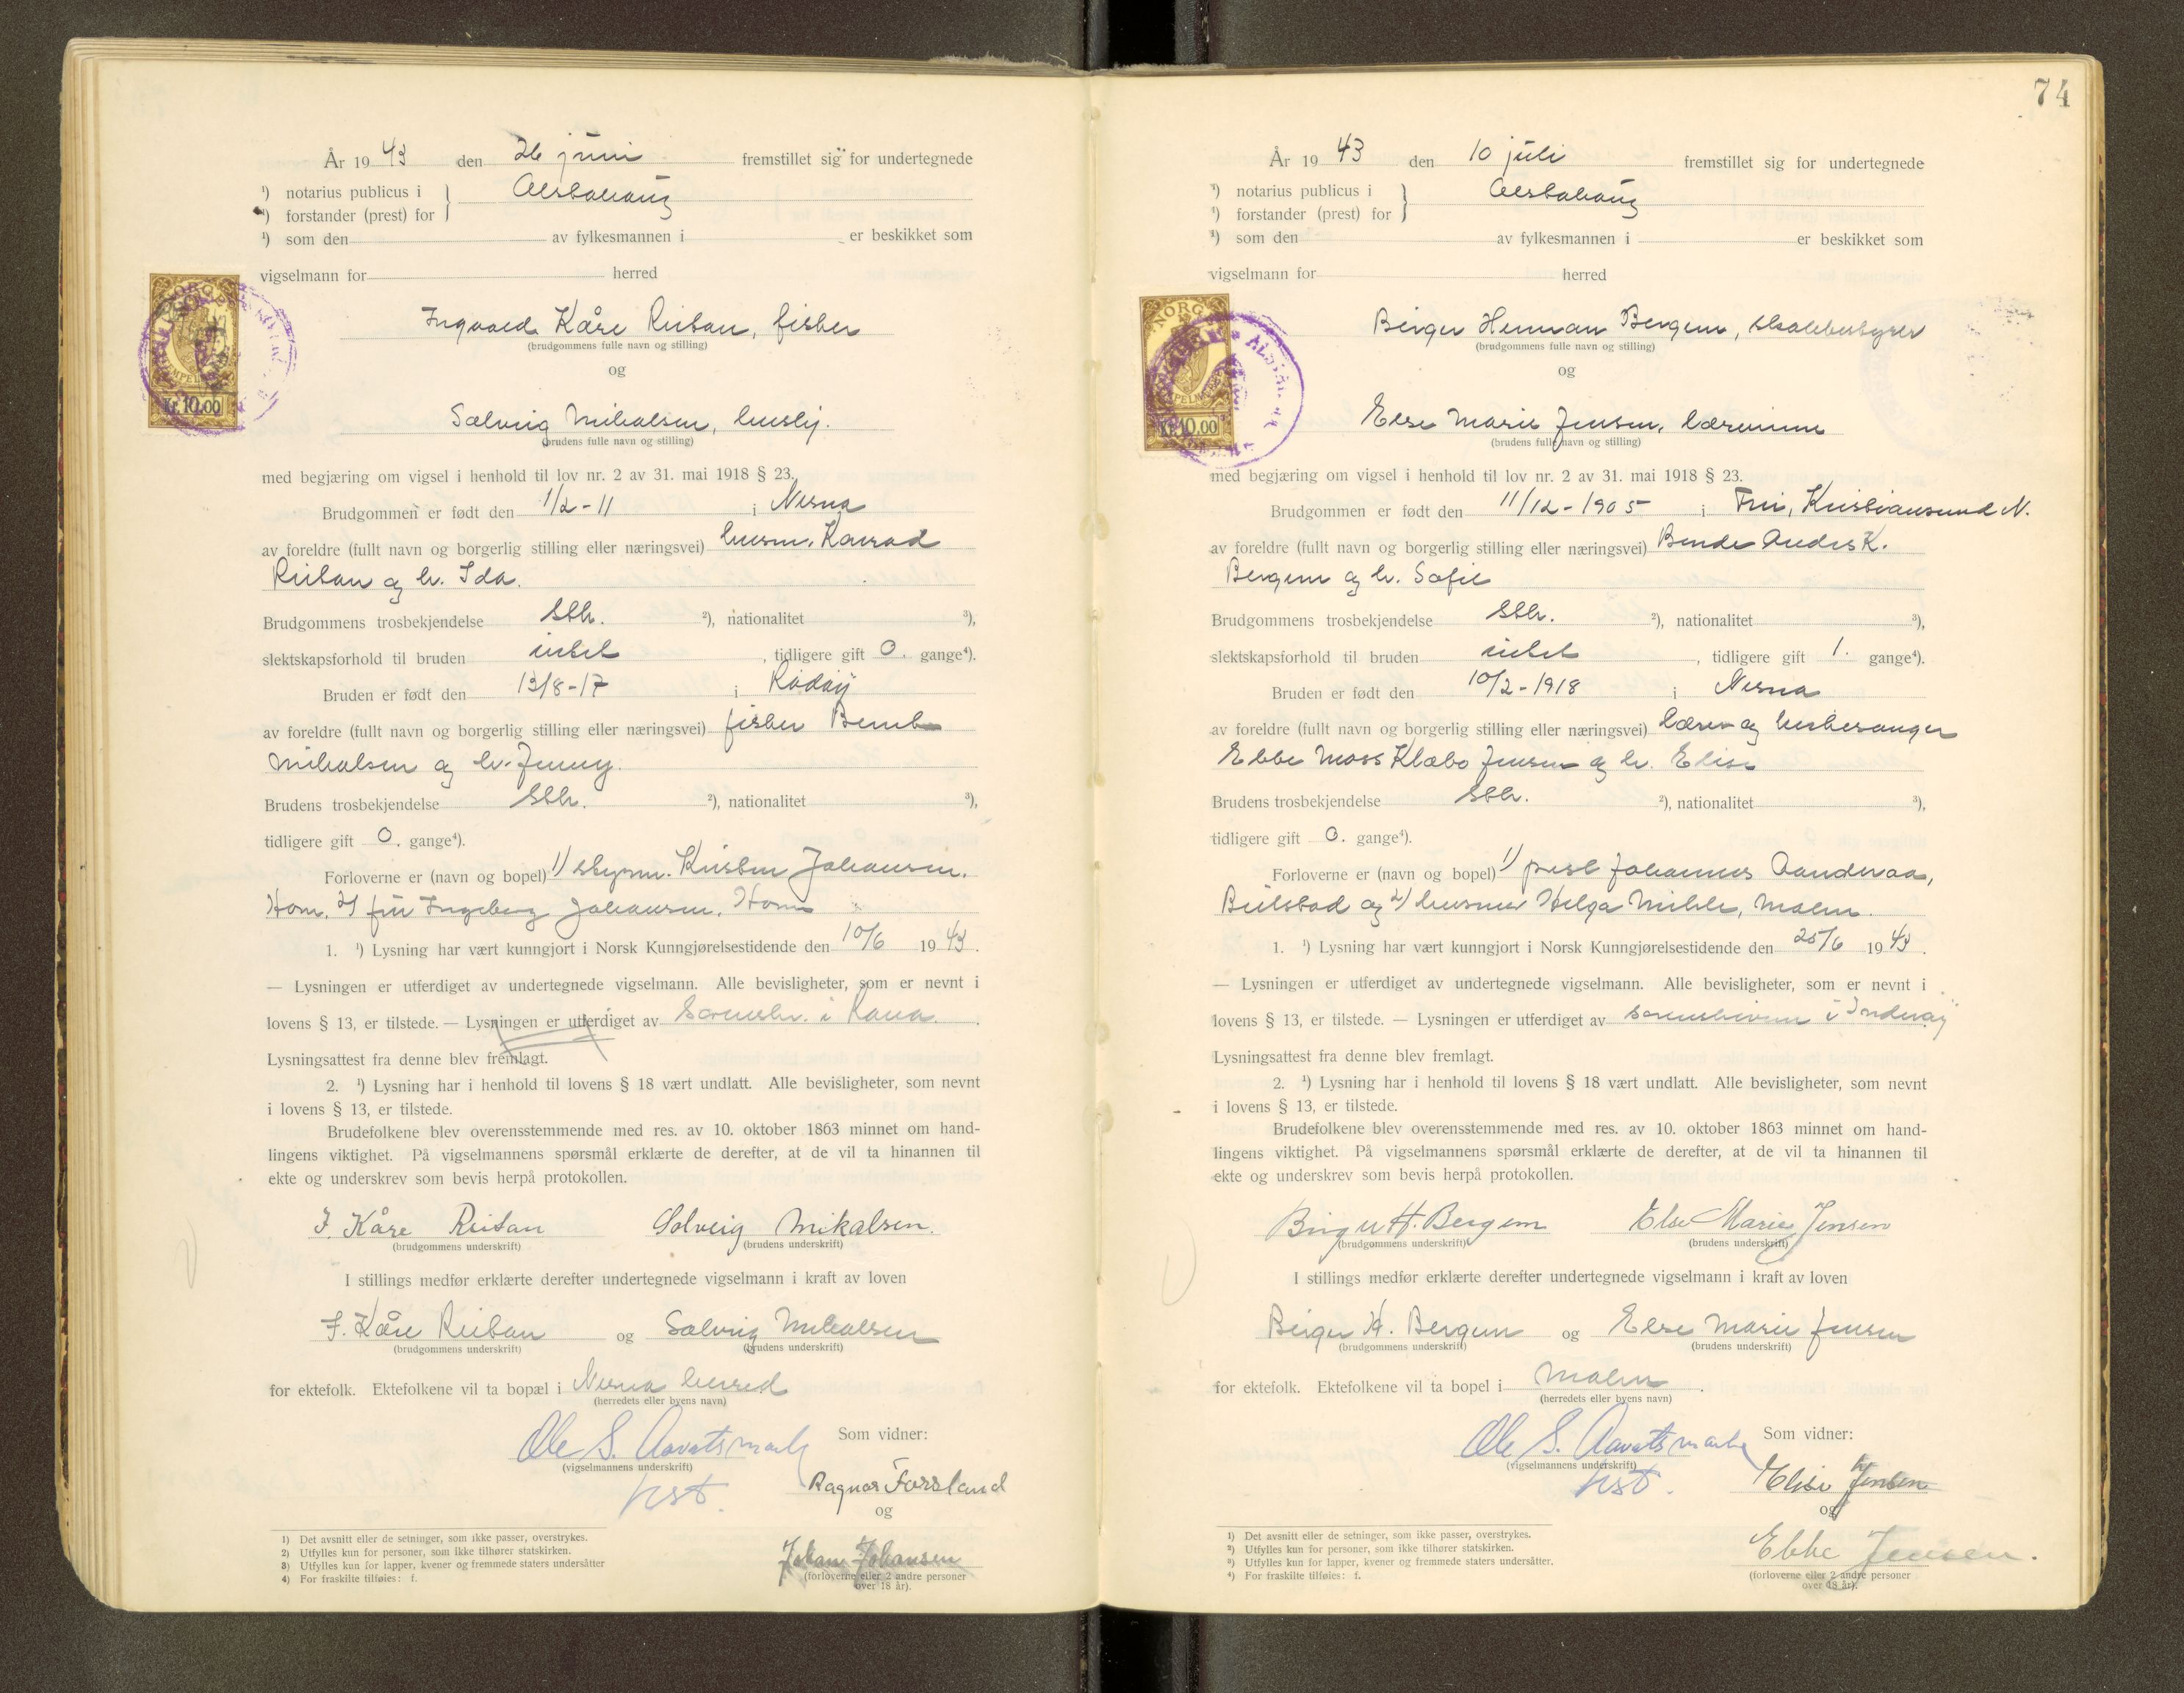 År 1943 den 26 juni fremstillet sig for undertegnede
¹) notarius publicus i
Alstahaug
¹) forstander (prest) for
¹) som den av fylkesmannen i er beskikket som
vigselmann for herred
Ingvald Kåre Reitan, fisker
(brudgommens fulle navn og stilling)
og
Solveig Mikalsen, husstj.
(brudens fulle navn og stilling)
med begjæring om vigsel i henhold til lov nr. 2 av 31. mai 1918 § 23.
Brudgommen er født den 1/2-11 i Nesna
av foreldre (fullt navn og borgerlig stilling eller næringsvei) husm. Konrad
Reitan og h. Ida.
Brudgommens trosbekjendelse Stk. ²), nationalitet ³),
slektskapsforhold til bruden intet, tidligere gift 0. gange⁴).
Bruden er født den 13/8-17 i Rödöy
av foreldre (fullt navn og borgerlig stilling eller næringsvei) fisker Bernt
Mikalsen og h. Jenny.
Brudens trosbekjendelse Stk. ²), nationalitet ³),
tidligere gift 0. gange⁴).
Forloverne er (navn og bopel) 1) styrm. Kristen Johansen.
Hom, 2) fru Ingeborg Johansen, Hom
1. ¹) Lysning har vært kunngjort i Norsk Kunngjørelsestidende den 10/6 1943.
— Lysningen er utferdiget av undertegnede vigselmann. Alle bevisligheter, som er nevnt i
lovens § 13, er tilstede. — Lysningen er utferdiget av Sorenskr. i Rana.
Lysningsattest fra denne blev fremlagt.
2. ¹) Lysning har i henhold til lovens § 18 vært undlatt. Alle bevisligheter, som nevnt
i lovens § 13, er tilstede.
Brudefolkene blev overensstemmende med res. av 10. oktober 1863 minnet om hand-
lingens viktighet. På vigselmannens spørsmål erklærte de derefter, at de vil ta hinannen til
ekte og underskrev som bevis herpå protokollen.
I. Kåre Reitan Solveig Mikalsen.
(brudgommens underskrift) (brudens underskrift)
I stillings medfør erklærte derefter undertegnede vigselmann i kraft av loven
I. Kåre Reitan og Solveig Mikalsen
(brudgommens underskrift) (brudens underskrift)
for ektefolk. Ektefolkene vil ta bopæl i Nesna herred
(herredets eller byens navn)
Ole S. Aavatsmark Som vidner:
(vigselmannens underskrift)
kst.
Ragnar Forsland
og
Johan Johansen
(forloverne eller 2 andre personer
over 18 år).
1) Det avsnitt eller de setninger, som ikke passer, overstrykes.
2) Utfylles kun for personer, som ikke tilhører statskirken.
3) Utfylles kun for lapper, kvener og fremmede staters undersåtter
4) For fraskilte tilføies: f.
NORGE
Kr. 10.00
74
År 1943 den 10 juli fremstillet sig for undertegnede
¹) notarius publicus i
Alstahaug
¹) forstander (prest) for
¹) som den av fylkesmannen i er beskikket som
vigselmann for herred
Birger Herman Bergem, skolebestyrer
(brudgommens fulle navn og stilling)
og
Else Marie Jensen, lærerinne
(brudens fulle navn og stilling)
med begjæring om vigsel i henhold til lov nr. 2 av 31. mai 1918 § 23.
Brudgommen er født den 11/12-1905 i Frei, Kristiansund N.
av foreldre (fullt navn og borgerlig stilling eller næringsvei) Bonde Anders K.
Bergem og h. Sofie
Brudgommens trosbekjendelse Stk. ²), nationalitet ³),
slektskapsforhold til bruden intet, tidligere gift 1. gange⁴).
Bruden er født den 10/2-1918 i Nesna
av foreldre (fullt navn og borgerlig stilling eller næringsvei) lærer og kirkesanger
Ebbe Moss Klæbo Jensen og h. Elise
Brudens trosbekjendelse Stk. ²), nationalitet ³),
tidligere gift 0. gange⁴).
Forloverne er (navn og bopel) 1) prest Johannes Aanderaa,
Beitstad og 2) husmor Helga Mikle, Malm.
1. ¹) Lysning har vært kunngjort i Norsk Kunngjørelsestidende den 25/6 1943.
— Lysningen er utferdiget av undertegnede vigselmann. Alle bevisligheter, som er nevnt i
lovens § 13, er tilstede. — Lysningen er utferdiget av sorenskriveren i Inderøy
Lysningsattest fra denne blev fremlagt.
2. ¹) Lysning har i henhold til lovens § 18 vært undlatt. Alle bevisligheter, som nevnt
i lovens § 13, er tilstede.
Brudefolkene blev overensstemmende med res. av 10. oktober 1863 minnet om hand-
lingens viktighet. På vigselmannens spørsmål erklærte de derefter, at de vil ta hinannen til
ekte og underskrev som bevis herpå protokollen.
Birger H. Bergem Else Marie Jensen
(brudgommens underskrift) (brudens underskrift)
I stillings medfør erklærte derefter undertegnede vigselmann i kraft av loven
Birger H. Bergem og Else Marie Jensen
(brudgommens underskrift) (brudens underskrift)
for ektefolk. Ektefolkene vil ta bopel i Malm.
(herredets eller byens navn)
Ole S. Aavatsmark Som vidner:
(vigselmannens underskrift)
kst.
Elise Jensen
og
Ebbe Jensen.
(forloverne eller 2 andre personer
over 18 år).
¹) Det avsnitt eller de setninger, som ikke passer, overstrykes.
²) Utfylles kun for personer, som ikke tilhører statskirken.
³) Utfylles kun for lapper, kvener og fremmede staters undersåtter.
⁴) For fraskilte tilføies: f.
NORGE
Kr. 10.00